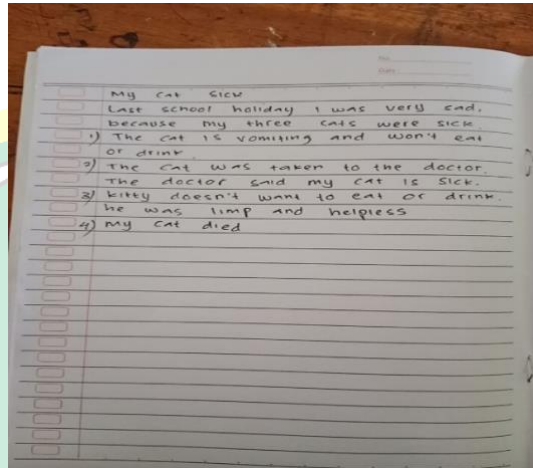 My cat sick
Last school holiday i was very sad.
because my three cats were sick
1) The cat is vomiting and won't eat
or drink
2) The cat was taken to the doctor.
The doctor said my cat is sick.
3) kitty doesn't want to eat or drink.
he was limp and helpless
4) my cat died